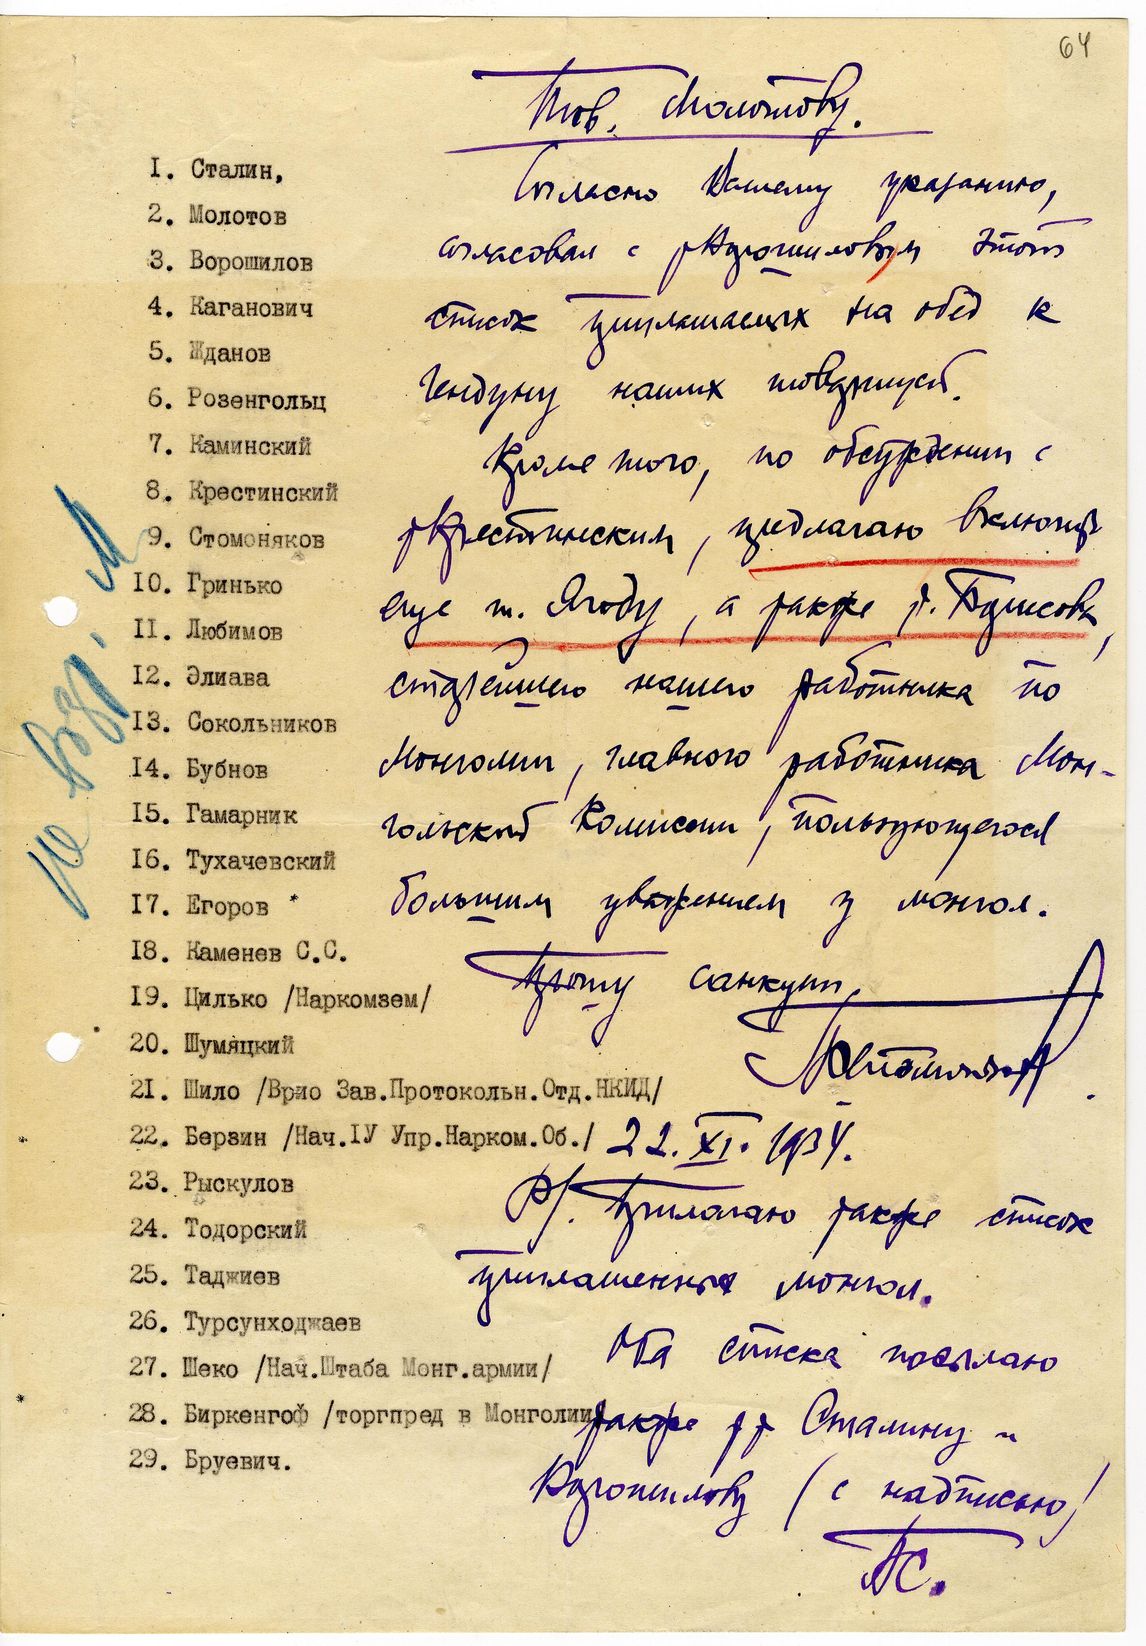 64
Тов. Молотову.
Согласно Вашему указанию,
согласовал с т. Ворошиловым этот
список приглашаемых на обед к
Гендуну наших товарищей.
Кроме того, по обсуждении с
т. Крестинским, предлагаю включить
еще т. Ягоду, а также т. Борисова,
старейшего нашего работника по
Монголии, главного работника Мон-
гольской Комиссии, пользующегося
большим уважением у монгол.
Прошу санкции.
22.XI.1934.
P/. Прилагаю также список
приглашенных монгол.
Оба списка посылаю
также т.т. Сталину и
Ворошилову (с надписью)
БС.
не возр. М
1. Сталин,
2. Молотов
3. Ворошилов
4. Каганович
5. Жданов
6. Розенгольц
7. Каминский
8. Крестинский
9. Стомоняков
10. Гринько
11. Любимов
12. Элиава
13. Сокольников
14. Бубнов
15. Гамарник
16. Тухачевский
17. Егоров
18. Каменев С.С.
19. Цилько /Наркомзем/
20. Шумяцкий
21. Шило /Врио Зав.Протокольн.Отд.НКИД/
22. Берзин /Нач.IУ Упр.Нарком.Об./
23. Рыскулов
24. Тодорский
25. Таджиев
26. Турсунходжаев
27. Шеко /Нач.Штаба Монг.армии/
28. Биркенгоф /торгпред в Монголии/
29. Бруевич.